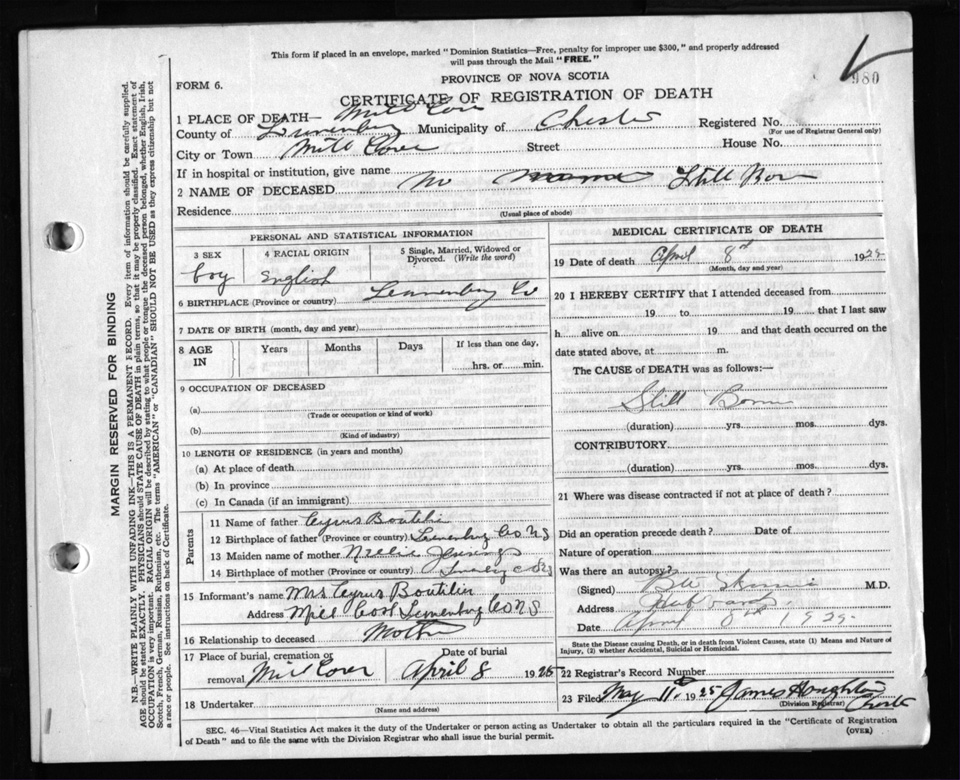 This form if placed in an envelope, marked "Dominion Statistics—Free, penalty for improper use $300," and properly addressed
will pass through the Mail "FREE."
980
FORM 6.
PROVINCE OF NOVA SCOTIA
CERTIFICATE OF REGISTRATION OF DEATH
1 PLACE OF DEATH— Mill Cove
County of Lunenburg Municipality of Chester Registered No.
(For use of Registrar General only)
City or Town Mill Cove Street House No.
If in hospital or institution, give name
2 NAME OF DECEASED No name Still Born
Residence
(Usual place of abode)
PERSONAL AND STATISTICAL INFORMATION
3 SEX 4 RACIAL ORIGIN 5 Single, Married, Widowed or
Divorced. (Write the word)
boy English
6 BIRTHPLACE (Province or country) Lunenburg Co
7 DATE OF BIRTH (month, day and year)
8 AGE IN Years Months Days If less than one day,
hrs. or min.
9 OCCUPATION OF DECEASED
(a)
(Trade or occupation or kind of work)
(b)
(Kind of industry)
10 LENGTH OF RESIDENCE (in years and months)
(a) At place of death
(b) In province
(c) In Canada (if an immigrant)
Parents
11 Name of father Cyrus Boutilier
12 Birthplace of father (Province or country) Lunenburg Co N S
13 Maiden name of mother Nellie
14 Birthplace of mother (Province or country)
15 Informant's name Mrs Cyrus Boutilier
Address Mill Lunenburg Co N S
16 Relationship to deceased Mother
17 Place of burial, cremation or Date of burial
removal Mill Cove April 8 1925
18 Undertaker
(Name and address)
MEDICAL CERTIFICATE OF DEATH
19 Date of death April 8 1925
(Month, day and year)
20 I HEREBY CERTIFY that I attended deceased from
19 to 19 that I last saw
h alive on 19 and that death occurred on the
date stated above, at m.
The CAUSE of DEATH was as follows:—
Still Born
(duration) yrs. mos. dys.
CONTRIBUTORY
(duration) yrs. mos. dys.
21 Where was disease contracted if not at place of death?
Did an operation precede death? Date of
Nature of operation
Was there an autopsy?
(Signed) M.D.
Address Hubbards
Date April 8th 1925
State the Disease causing Death, or in death from Violent Causes, state (1) Means and Nature of
Injury, (2) whether Accidental, Suicidal or Homicidal.
22 Registrar's Record Number
23 Filed May 11th 1925 James Houghton
(Division Registrar) Chester
SEC. 46—Vital Statistics Act makes it the duty of the Undertaker or person acting as Undertaker to obtain all the particulars required in the "Certificate of Registration
of Death" and to file the same with the Division Registrar who shall issue the burial permit.
(OVER)
MARGIN RESERVED FOR BINDING
N.B.—WRITE PLAINLY WITH UNFADING INK—THIS IS A PERMANENT RECORD. Every item of information should be carefully supplied.
AGE should be stated EXACTLY. PHYSICIANS should STATE CAUSE OF DEATH in plain terms, so that it may be properly classified. Exact statement of
OCCUPATION is very important. RACIAL ORIGIN will be described by stating to what people or tongue the deceased person belonged, whether English, Irish,
Scotch, French, German, Russian, Ruthenian, etc. The terms "AMERICAN" or "CANADIAN" SHOULD NOT BE USED as they express citizenship but not
a race or people. See instructions on back of Certificate.